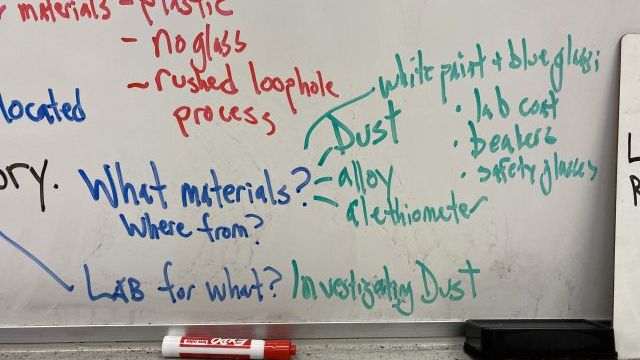 materials - plastic
- no glass
- rushed loophole
process
located
ory.
What materials?
Where from?
white paint + blue glass
Dust
alloy
alethiometer
• lab coat
• beakers
• safety glasses
LAB for what? Investigating Dust
EXPO
L
R